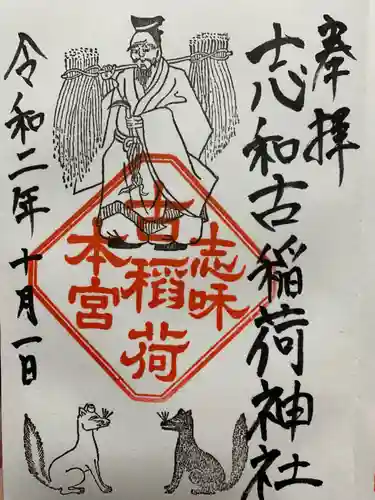 奉拝
志和古稲荷神社
志味
古稲荷
本宮
令和二年十月一日